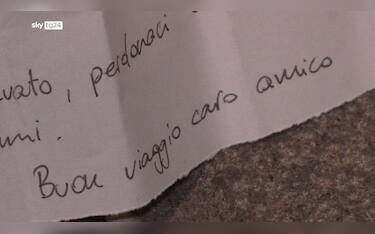 sky tg24
, perdonaci
Buon viaggio caro amico